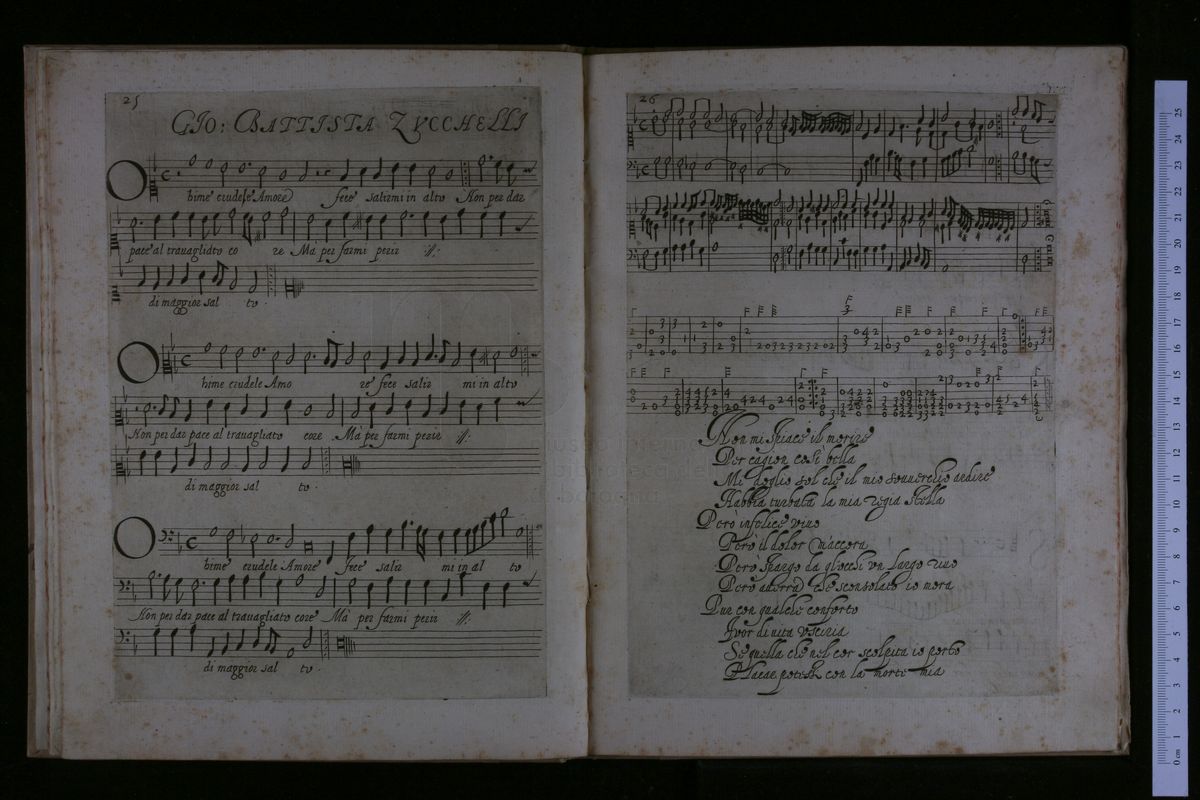 25
GIO: BATTISTA ZVCCHELLI
Ohime crudele Amore fece salirmi in alto Non per dar
pace al trauagliato co re Mà per farmi perir :||:
di maggior sal to.
Ohime crudele Amo re fece salir mi in alto
Non per dar pace al trauagliato core Mà per farmi perir :||:
di maggior sal to.
Ohime crudele Amore fece salir mi in al to
Non per dar pace al trauagliato core Mà per farmi perir :||:
di maggior sal to.
26
Non mi spiace il morire
Per cagion cosi bella
Mi doglio sol che il mio souuerchio ardire
Habbia turbata la mia regia stella
Però infelice viuo
Però il dolor m'accora
Però spargo da gl'occhi vn largo riuo
Però auerrà che sconsolato io mora
Pur con qualche conforto
Fuor di uita vsciria
Se quella che nel cor scolpita io porto
Placar potessi con la morte mia